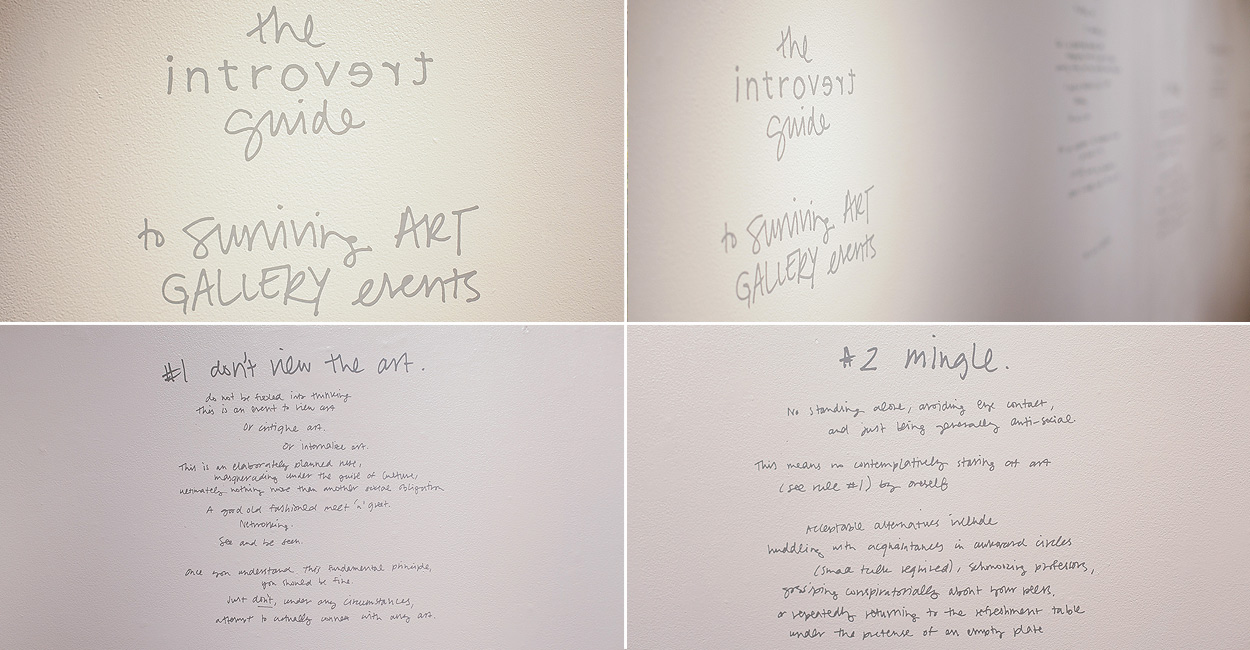 the
introvert
guide
to surviving ART
GALLERY events
the
introvert
guide
to surviving ART
GALLERY events
#1 don't view the art.
do not be fooled into thinking
this is an event to view art
Or critique art.
Or internalize art.
This is an elaborately planned ruse,
masquerading under the guise of culture,
ultimately nothing more than another social obligation
A good old fashioned meet 'n' greet.
Networking.
See and be seen.
Once you understand this fundamental principle,
you should be fine.
Just don't, under any circumstances,
attempt to actually connect with any art.
#2 mingle.
No standing alone, avoiding eye contact,
and just being generally anti-social
This means no contemplatively staring at art
(see rule #1) by oneself
Acceptable alternatives include
huddling with acquaintances in awkward circles
(small talk required), schmoozing professors,
gossiping conspiratorially about your peers,
or repeatedly returning to the refreshment table
under the pretense of an empty plate